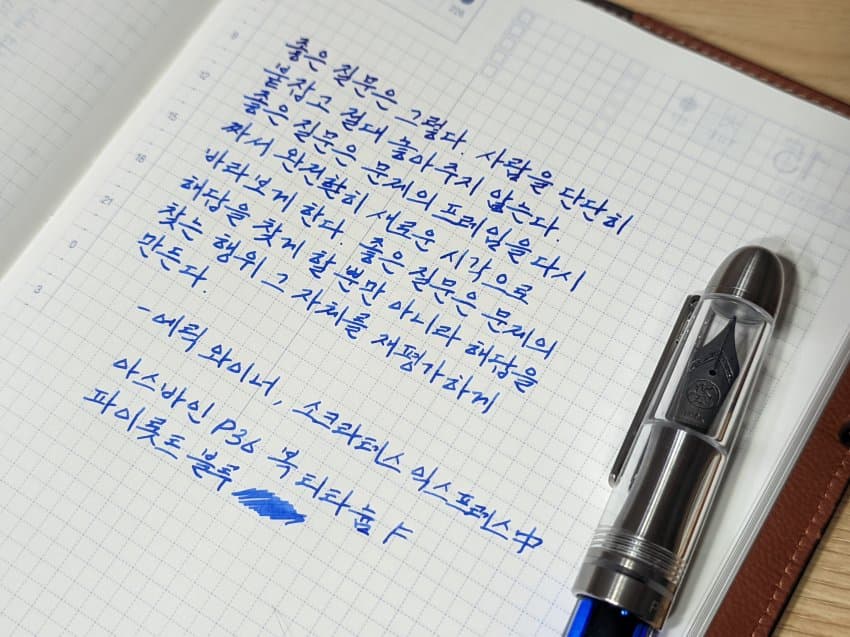 좋은 질문은 그렇다. 사람을 단단히
붙잡고 절대 놓아주지 않는다.
좋은 질문은 문제의 프레임을 다시
짜서 완전환히 새로운 시각으로
바라보게 한다. 좋은 질문은 문제의
해답을 찾게 할 뿐만 아니라 해답을
찾는 행위 그 자체를 재평가하게
만든다.
- 에릭 와이너, 소크라테스 익스프레스 中
아스바인 P36 복 티타늄 F
파이롯트 블루
12
15
18
21
0
3
15